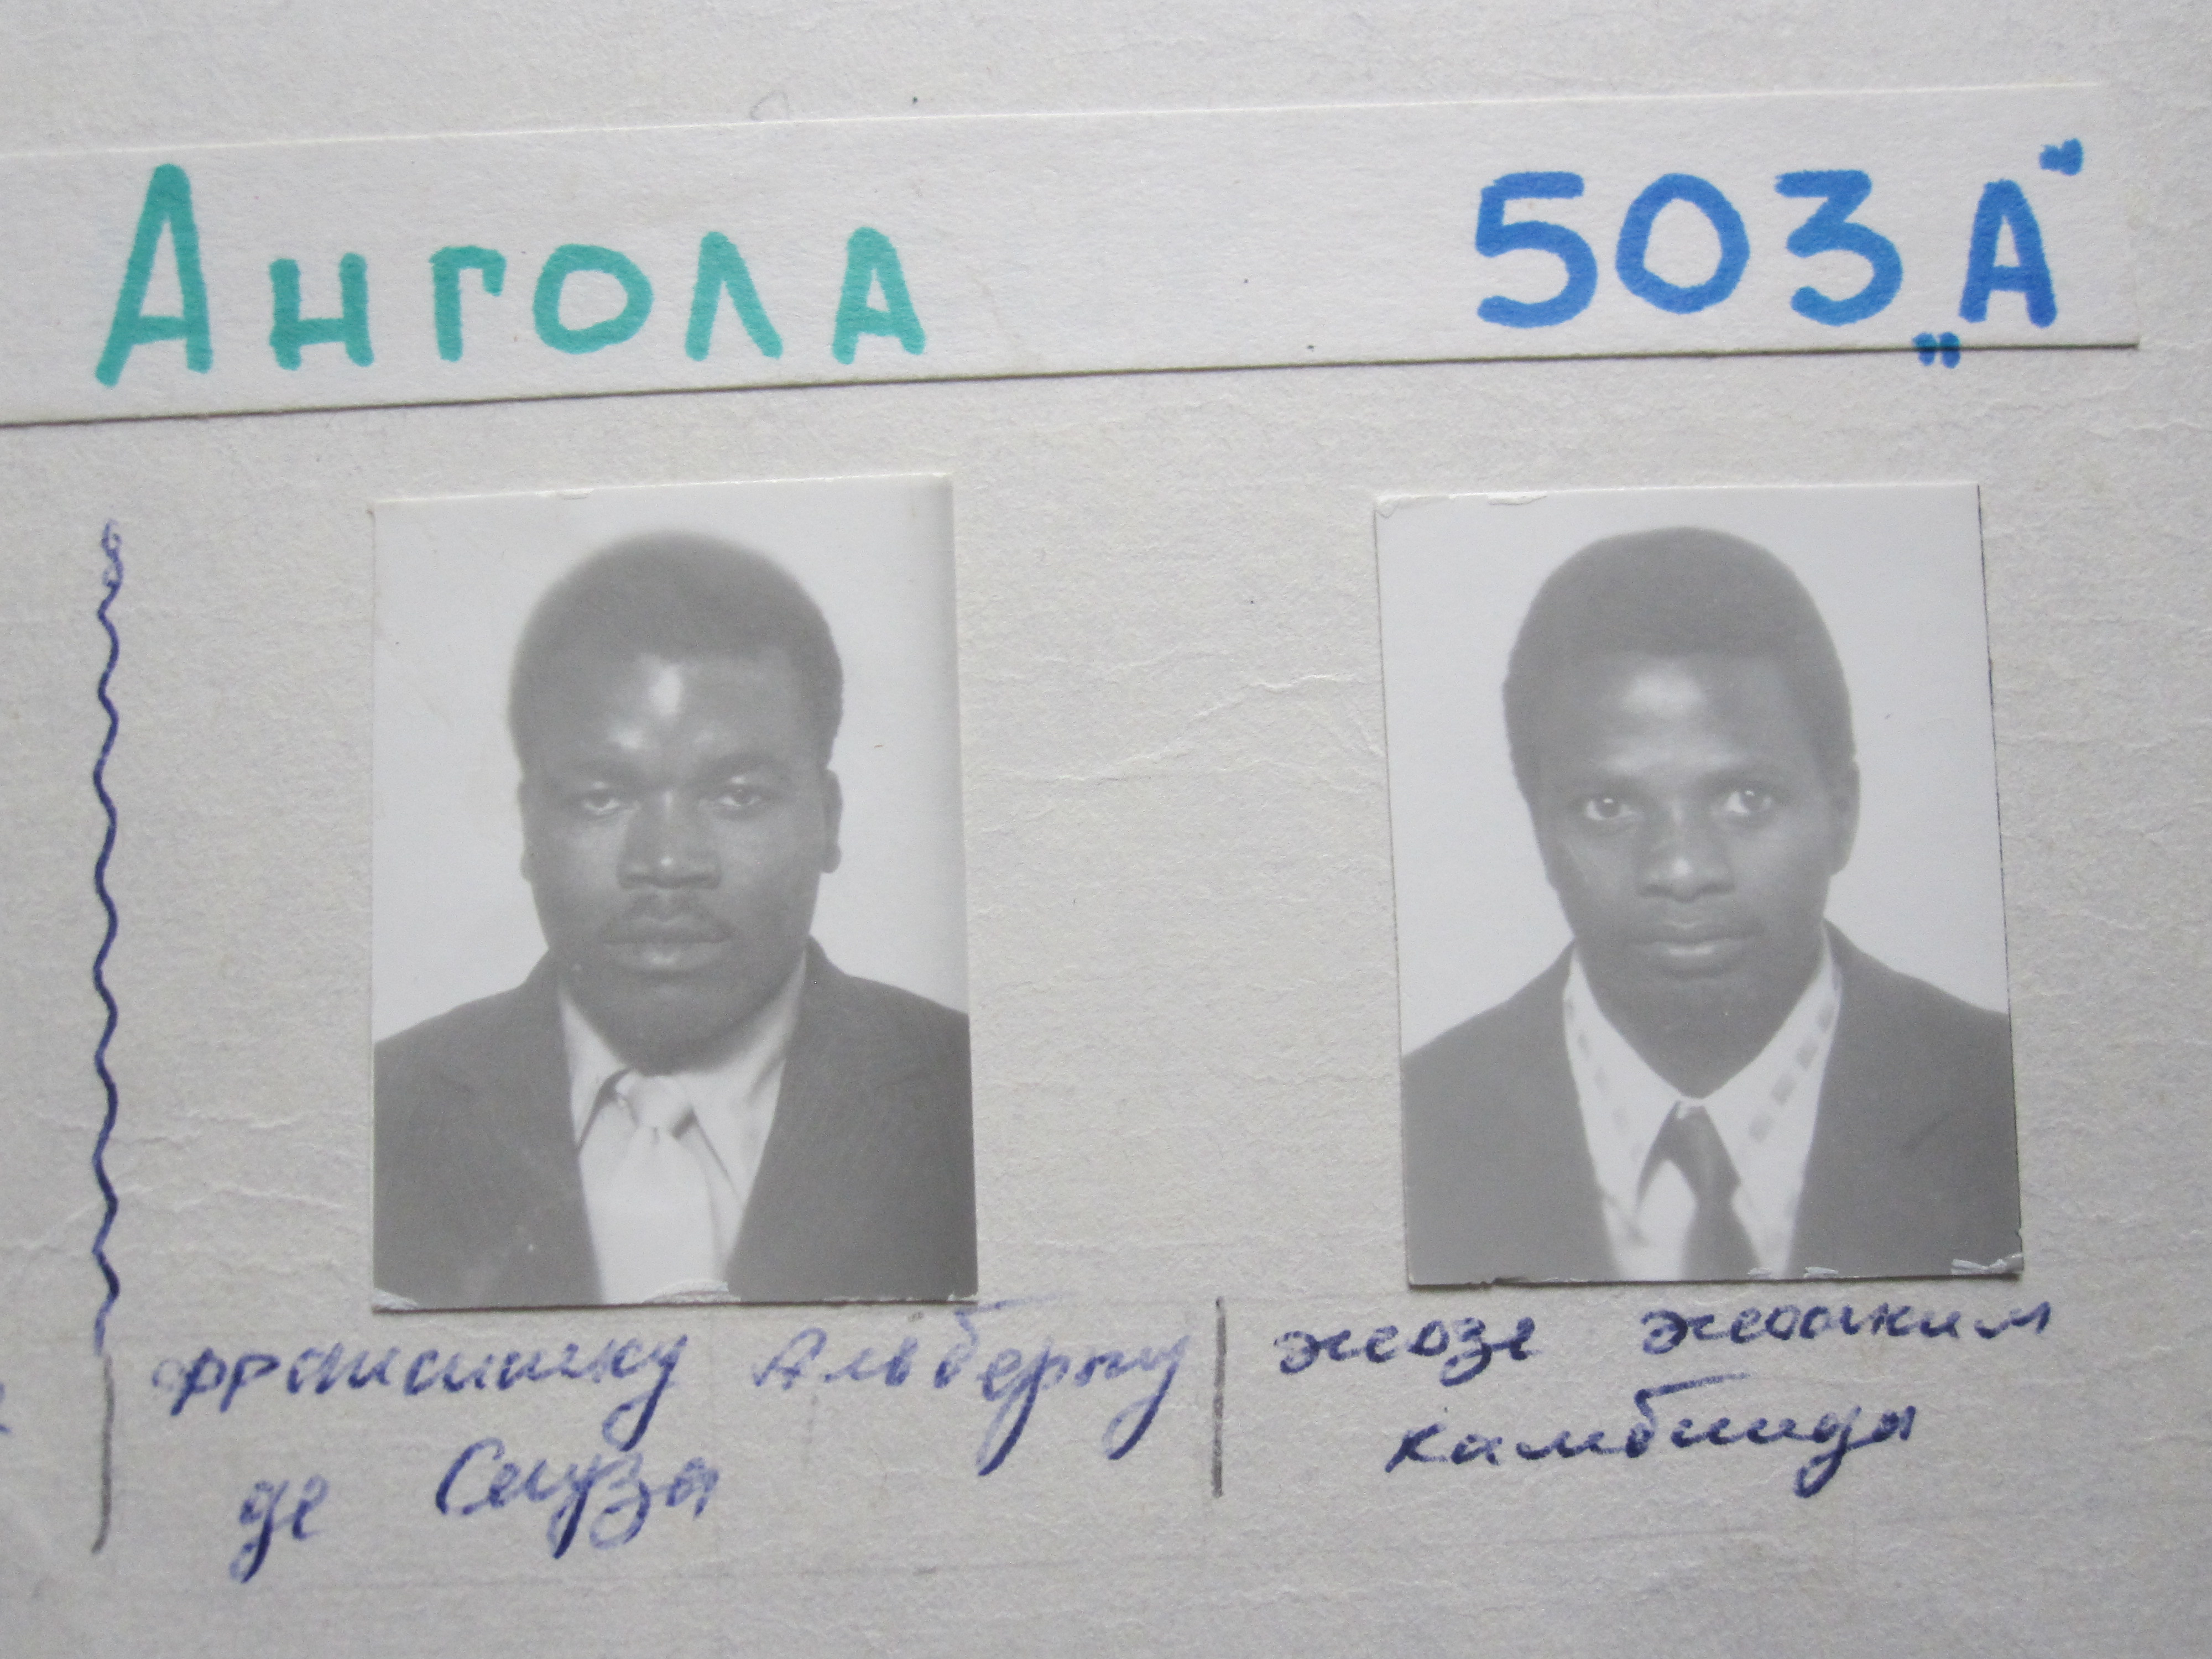 Ангола 503 „А“
Франсишку Альберту
де Соуза
жозе жоаким
камбинда